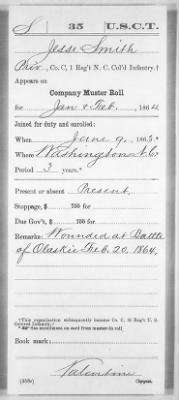 S | 35 | U.S.C.T.
Jesse Smith
Priv, Co. C, 1 Reg't N. C. Col'd Infantry.†
Appears on
Company Muster Roll
for Jan & Feb., 1864
Joined for duty and enrolled:
When June 9, 1863.*
Where Washington N.C.
Period 3 years.*
Present or absent Present
Stoppage, $ 100 for
Due Gov't, $ 100 for
Remarks: Wounded at Battle
of Olaskie Feb. 20, 1864.
†This organization subsequently became Co. C, 35 Reg't U. S.
Colored Infantry.
*See enrollment on card from muster-in roll.
Book mark:
Valentine
(358c) Copyist.